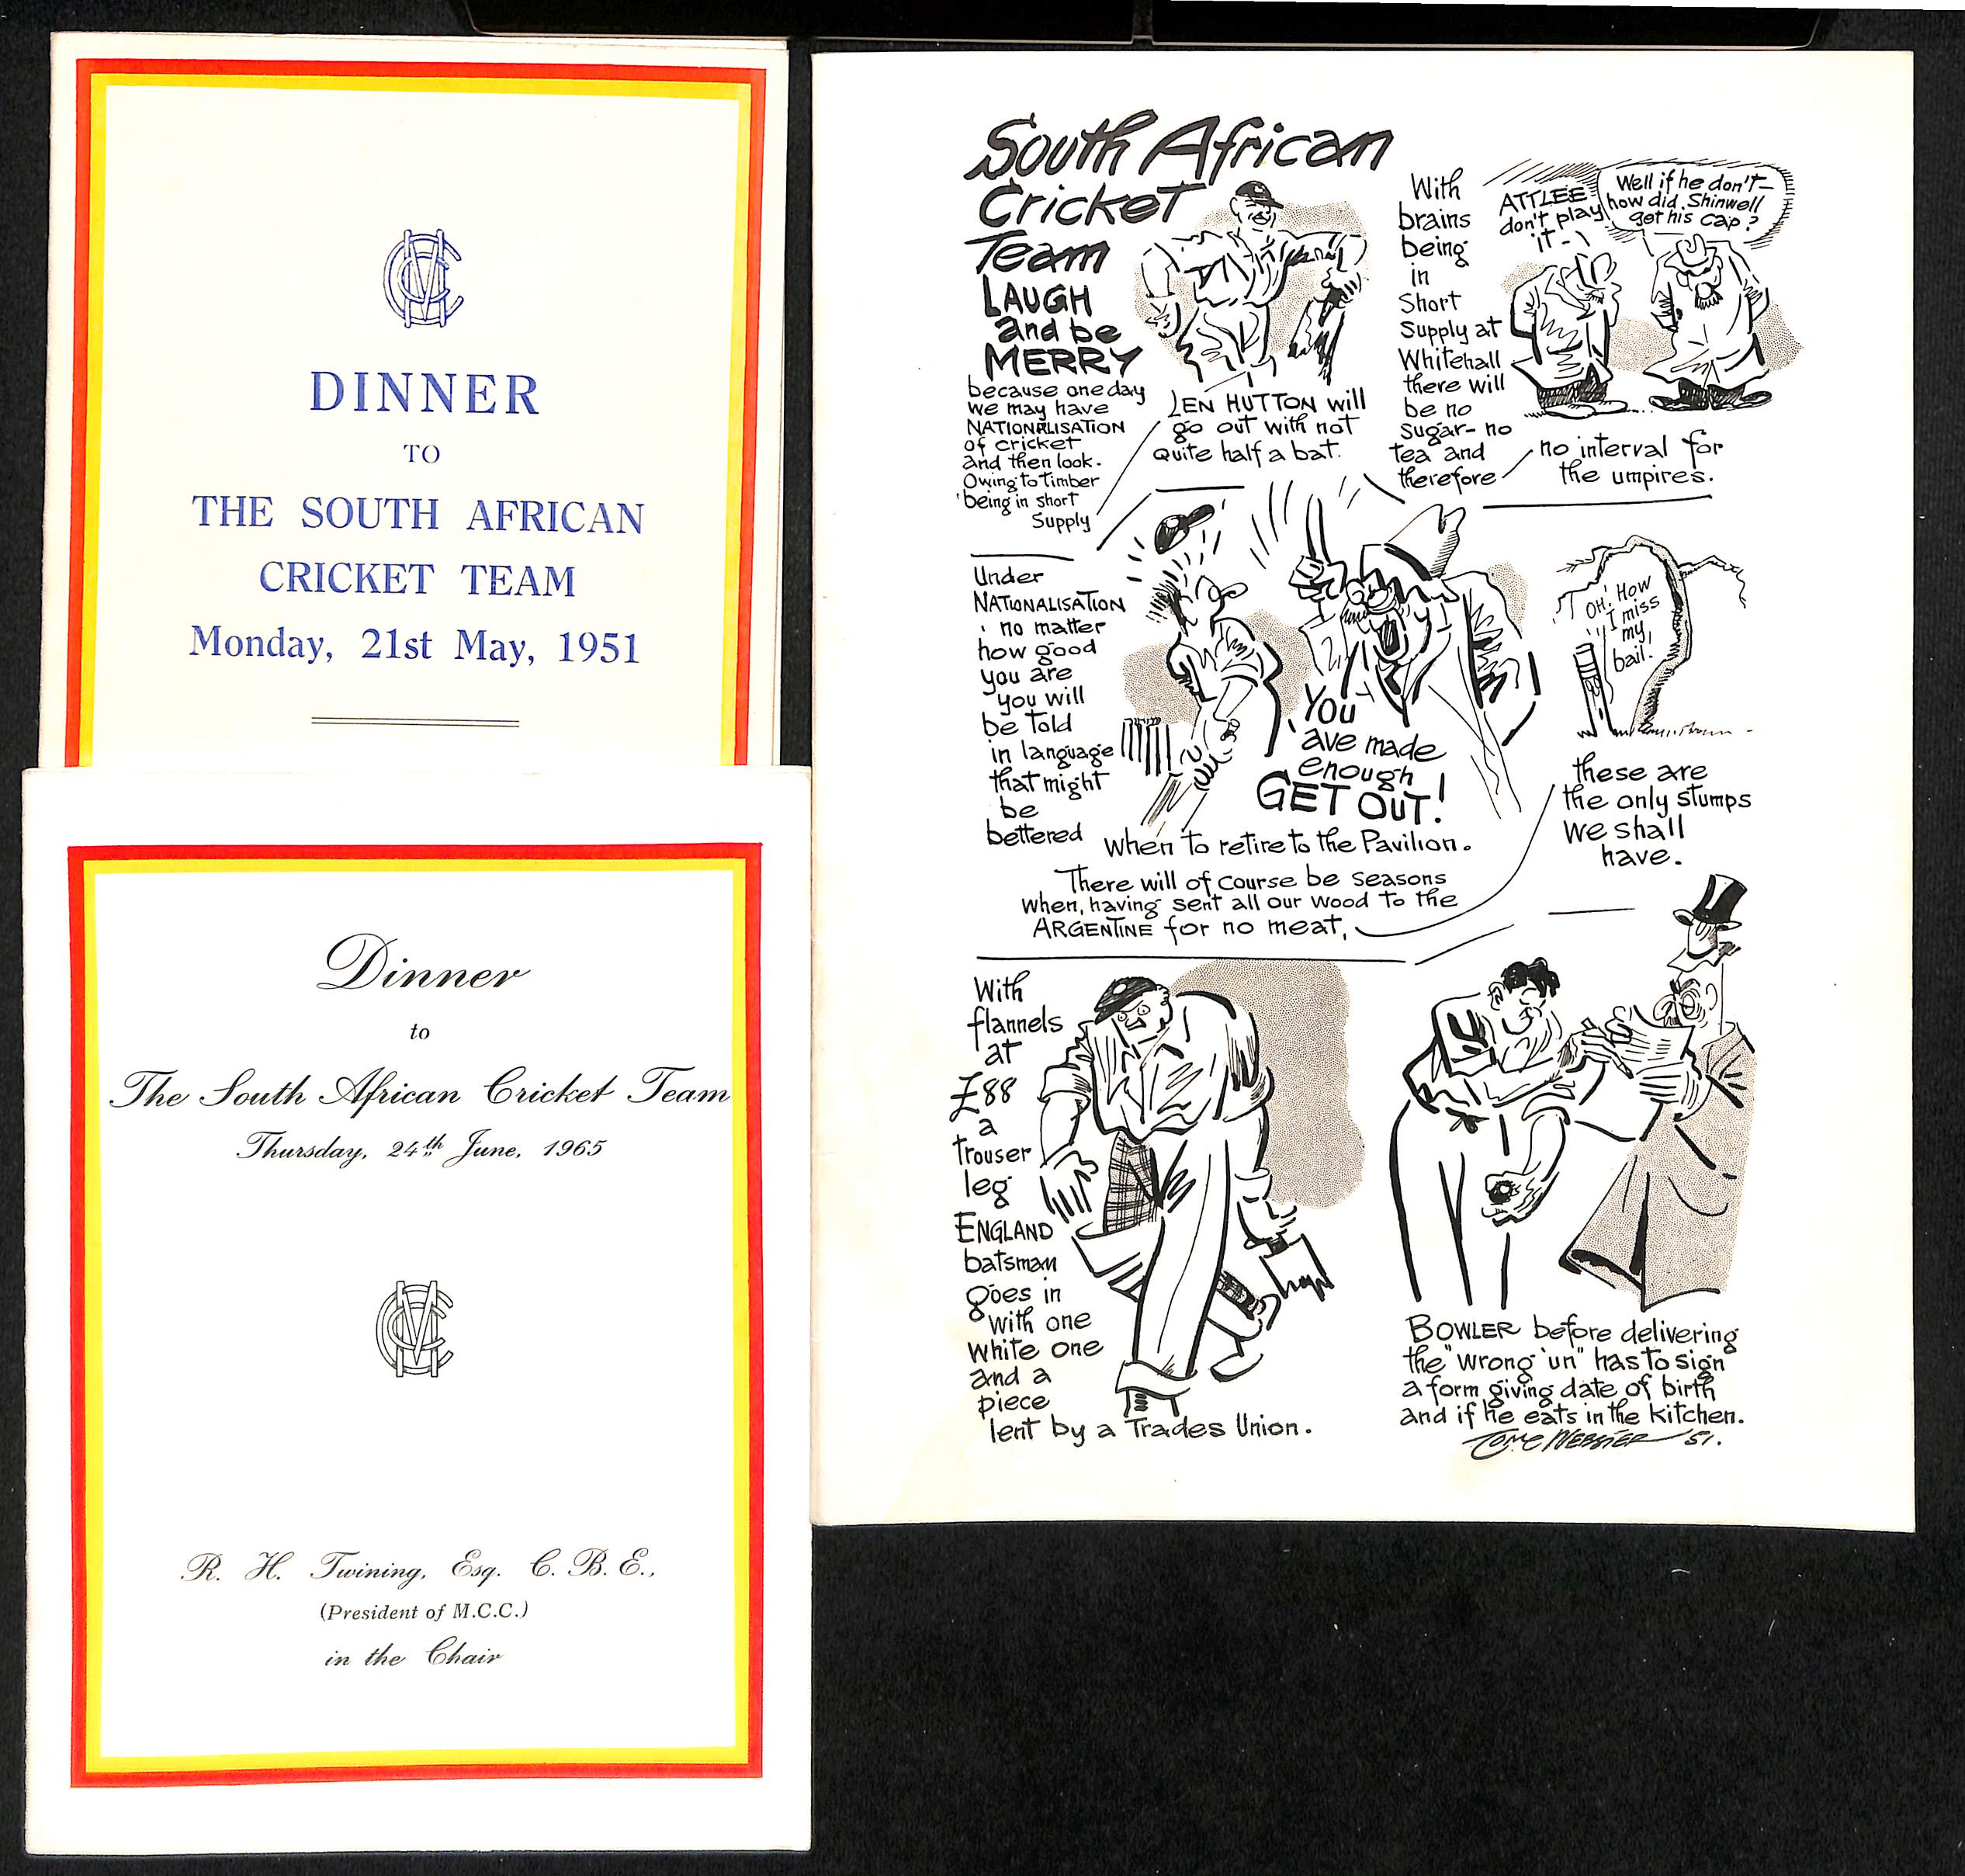 MCC
DINNER
TO
THE SOUTH AFRICAN
CRICKET TEAM
Monday, 21st May, 1951
Dinner
to
The South African Cricket Team
Thursday, 24th June, 1965
MCC
R. H. Twining, Esq. C. B. E.,
(President of M.C.C.)
in the Chair
South African
Cricket
Team
LAUGH
and be
MERRY
because one day
we may have
NATIONALISATION
of cricket
and then look.
Owing to timber
being in short
Supply
LEN HUTTON will
go out with not
quite half a bat.
With
brains
being
in
Short
Supply at
Whitehall
there will
be no
sugar- no
tea and
therefore
ATTLEE
don't play
it -
Well if he don't-
how did Shinwell
get his cap?
no interval for
the umpires.
Under
NATIONALISATION
no matter
how good
you are
you will
be told
in language
that might
be
bettered
You
'ave made
enough
GET OUT!
when to retire to the Pavilion.
There will of course be seasons
when, having sent all our wood to the
ARGENTINE for no meat,
OH! How
I miss
my
bail!
these are
the only stumps
we shall
have.
With
flannels
at
£88
a
trouser
leg
ENGLAND
batsman
goes in
with one
white one
and a
piece
lent by a Trades Union.
BOWLER before delivering
the "wrong 'un" has to sign
a form giving date of birth
and if he eats in the kitchen.
TOM WEBSTER 51.